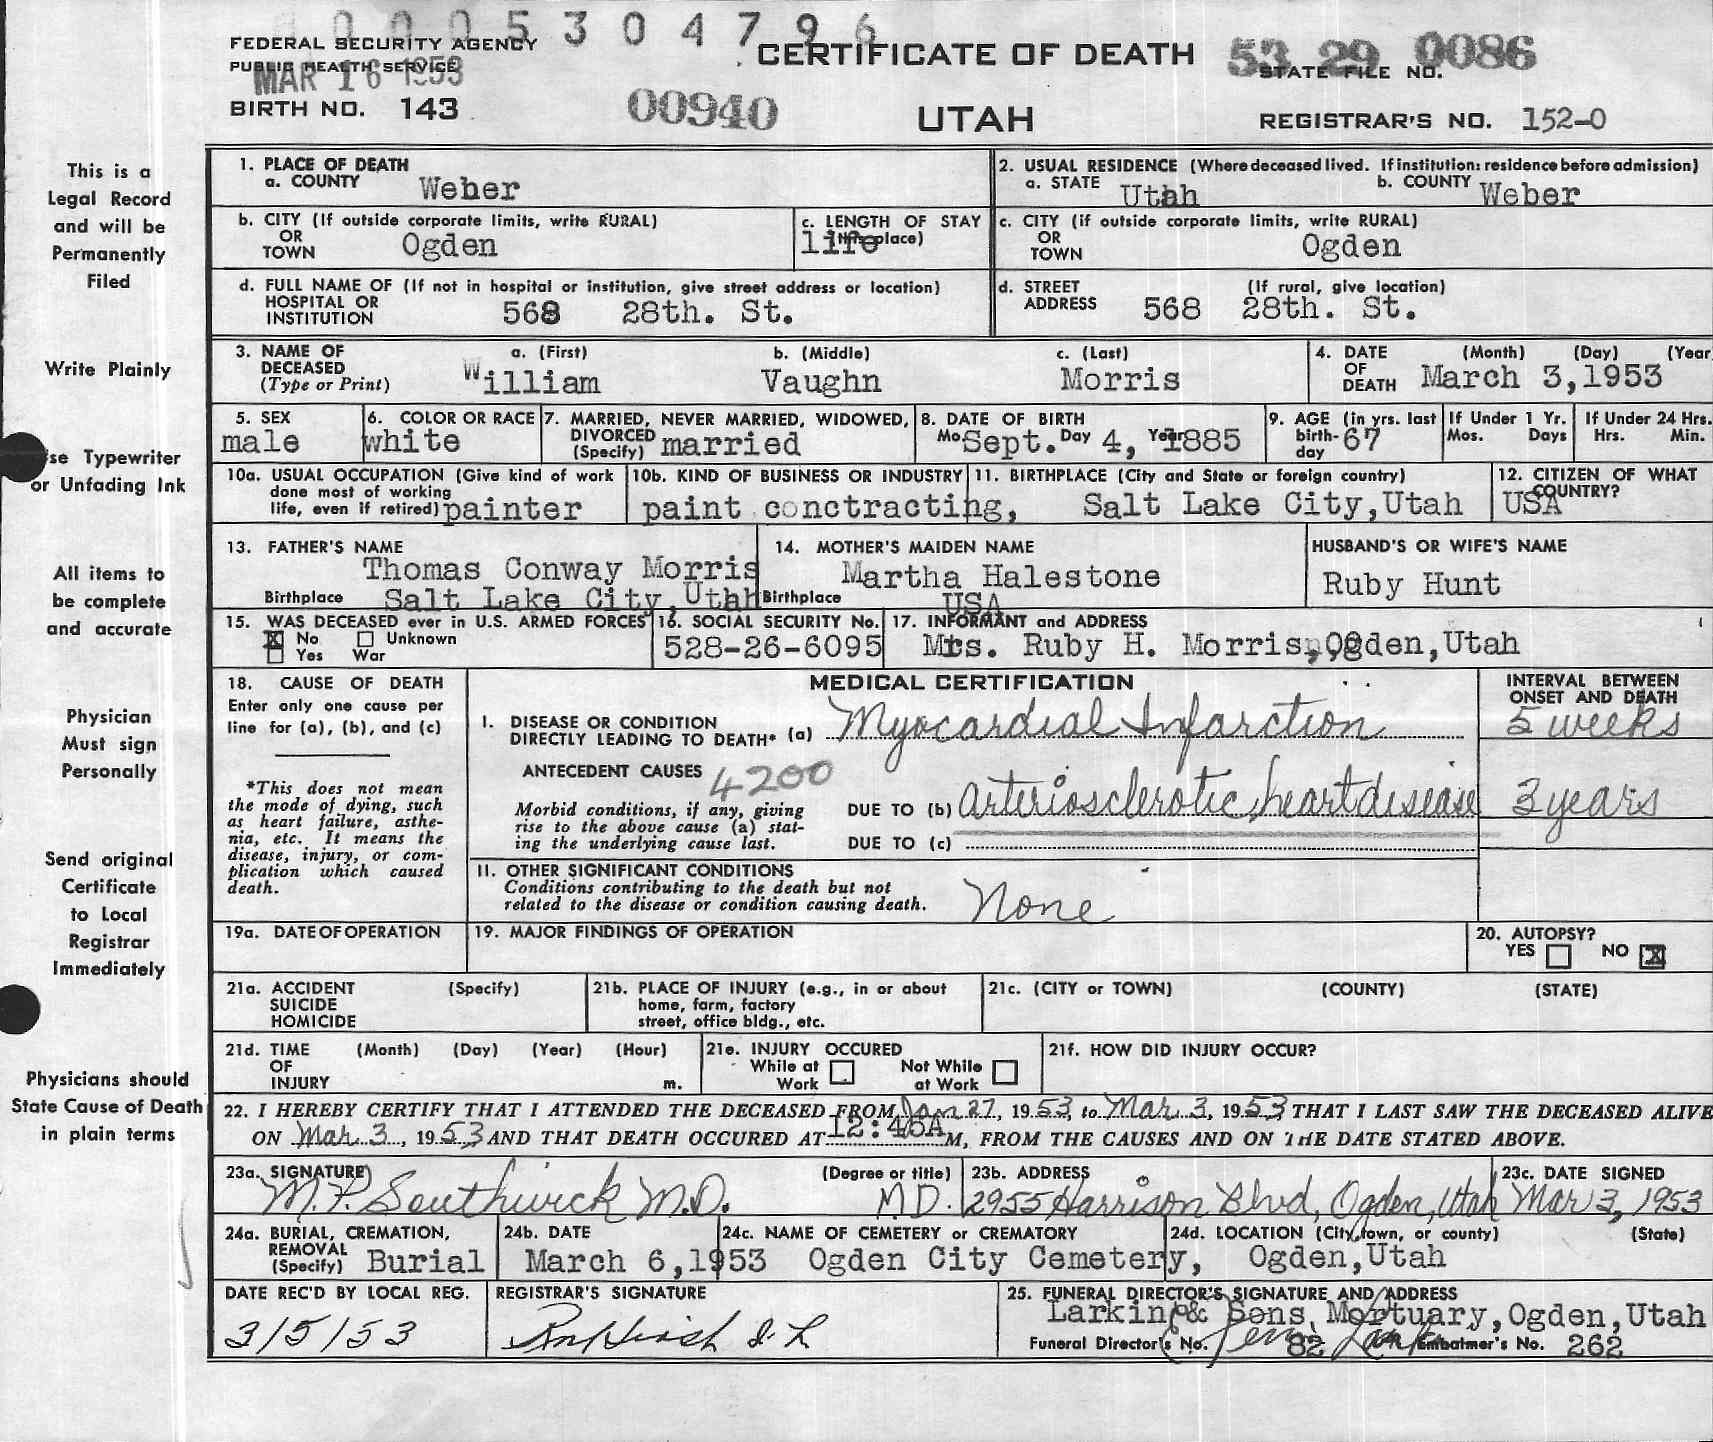 0005304796
FEDERAL SECURITY AGENCY
PUBLIC HEALTH SERVICE
MAR 16 1953
CERTIFICATE OF DEATH
53 29 0086
STATE FILE NO.
BIRTH NO. 143
00940
UTAH
REGISTRAR'S NO. 152-0
This is a
Legal Record
and will be
Permanently
Filed
Write Plainly
se Typewriter
or Unfading Ink
All items to
be complete
and accurate
Physician
Must sign
Personally
Send original
Certificate
to Local
Registrar
Immediately
Physicians should
State Cause of Death
in plain terms
1. PLACE OF DEATH
a. COUNTY Weber
2. USUAL RESIDENCE (Where deceased lived. If institution: residence before admission)
a. STATE Utah b. COUNTY Weber
b. CITY (If outside corporate limits, write RURAL)
OR
TOWN Ogden
c. LENGTH OF STAY
(in this place) life
c. CITY (if outside corporate limits, write RURAL)
OR
TOWN Ogden
d. FULL NAME OF (If not in hospital or institution, give street address or location)
HOSPITAL OR
INSTITUTION 568 28th. St.
d. STREET (If rural, give location)
ADDRESS 568 28th. St.
3. NAME OF a. (First) b. (Middle) c. (Last)
DECEASED
(Type or Print) William Vaughn Morris
4. DATE (Month) (Day) (Year
OF
DEATH March 3,1953
5. SEX
male
6. COLOR OR RACE
white
7. MARRIED, NEVER MARRIED, WIDOWED,
DIVORCED
(Specify) married
8. DATE OF BIRTH
Mo. Sept. Day 4, Year 1885
9. AGE (in yrs. last
birth-
day 67
If Under 1 Yr.
Mos. Days
If Under 24 Hrs.
Hrs. Min.
10a. USUAL OCCUPATION (Give kind of work
done most of working
life, even if retired) painter
10b. KIND OF BUSINESS OR INDUSTRY
paint conctracting,
11. BIRTHPLACE (City and State or foreign country)
Salt Lake City,Utah
12. CITIZEN OF WHAT
COUNTRY?
USA
13. FATHER'S NAME
Thomas Conway Morris
Birthplace Salt Lake City,Utah
14. MOTHER'S MAIDEN NAME
Martha Halestone
Birthplace USA
HUSBAND'S OR WIFE'S NAME
Ruby Hunt
15. WAS DECEASED ever in U.S. ARMED FORCES
X No Unknown
Yes War
16. SOCIAL SECURITY No.
528-26-6095
17. INFORMANT and ADDRESS
Mrs. Ruby H. Morris, Ogden,Utah
18. CAUSE OF DEATH
Enter only one cause per
line for (a), (b), and (c)
*This does not mean
the mode of dying, such
as heart failure, asthe-
nia, etc. It means the
disease, injury, or com-
plication which caused
death.
MEDICAL CERTIFICATION
INTERVAL BETWEEN
ONSET AND DEATH
I. DISEASE OR CONDITION
DIRECTLY LEADING TO DEATH* (a) Myocardial Infarction 5 weeks
ANTECEDENT CAUSES 4200
Morbid conditions, if any, giving
rise to the above cause (a) stat-
ing the underlying cause last.
DUE TO (b) Arteriosclerotic heart disease 3 years
DUE TO (c)
11. OTHER SIGNIFICANT CONDITIONS
Conditions contributing to the death but not
related to the disease or condition causing death. None
19a. DATE OF OPERATION
19. MAJOR FINDINGS OF OPERATION
20. AUTOPSY?
YES NO X
21a. ACCIDENT (Specify)
SUICIDE
HOMICIDE
21b. PLACE OF INJURY (e.g., in or about
home, farm, factory
street, office bldg., etc.
21c. (CITY or TOWN) (COUNTY) (STATE)
21d. TIME (Month) (Day) (Year) (Hour)
OF
INJURY m.
21e. INJURY OCCURED
While at Work Not While at Work
21f. HOW DID INJURY OCCUR?
22. I HEREBY CERTIFY THAT I ATTENDED THE DECEASED FROM Jan 27, 1953, to Mar 3, 1953 THAT I LAST SAW THE DECEASED ALIVE
ON Mar 3, 1953 AND THAT DEATH OCCURED AT 12:45A M, FROM THE CAUSES AND ON THE DATE STATED ABOVE.
23a. SIGNATURE (Degree or title)
M.P. Southwick M.D. M.D.
23b. ADDRESS
2955 Harrison Blvd, Ogden, Utah
23c. DATE SIGNED
Mar 3, 1953
24a. BURIAL, CREMATION,
REMOVAL
(Specify) Burial
24b. DATE
March 6,1953
24c. NAME OF CEMETERY or CREMATORY
Ogden City Cemetery,
24d. LOCATION (City, town, or county) (State)
Ogden,Utah
DATE REC'D BY LOCAL REG.
3/5/53
REGISTRAR'S SIGNATURE
25. FUNERAL DIRECTOR'S SIGNATURE AND ADDRESS
Larkin & Sons Mortuary,Ogden,Utah
Funeral Director's No. 82 Embalmer's No. 262